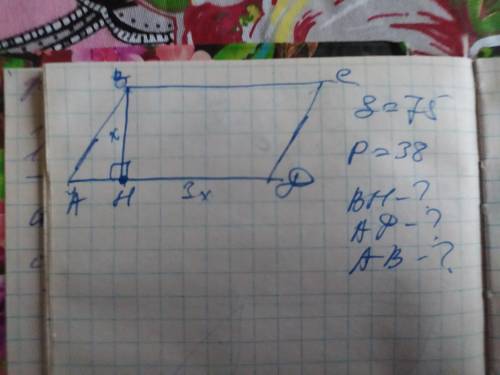 B C
S = 75
x
P = 38
A H 3x D
BH - ?
AD - ?
AB - ?